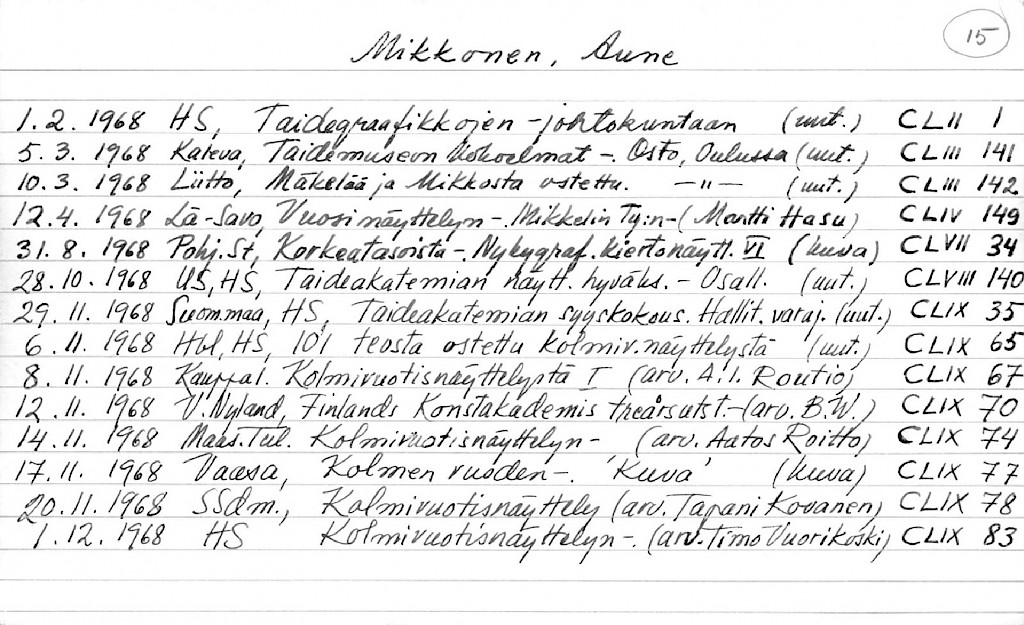 15
Mikkonen, Aune
1.2. 1968 HS, Taidegraafikkojen - johtokuntaan (uut.) CLII 1
5.3. 1968 Kaleva, Taidemuseon kokoelmat -. Osto, Oulussa (uut.) CLIII 141
10.3. 1968 Liitto, Mäkelää ja Mikkosta ostettu. —"— (uut.) CLIII 142
12.4. 1968 Lä-Savo, Vuosinäyttelyn -. Mikkelin Ty:n - (Martti Hasu) CLIV 149
31.8. 1968 Pohj.St, Korkeatasoista - Nykygraf. kiertonäytt. VI (kuva) CLVII 34
28.10. 1968 US, HS, Taideakatemian näytt. hyväks. - Osall. (uut.) CLVIII 140
29.11. 1968 Suom.maa, HS, Taideakatemian syyskokous. Hallit. varaj. (uut.) CLIX 35
6.11. 1968 Hbl, HS, 101 teosta ostettu kolmiv.näyttelystä (uut.) CLIX 65
8.11. 1968 Kauppal. Kolmivuotisnäyttelystä I (arv. A.I. Routio) CLIX 67
12.11. 1968 V.Nyland, Finlands Konstakademis treårsutst.- (arv. B.W.) CLIX 70
14.11. 1968 Maas.Tul. Kolmivuotisnäyttelyn - (arv. Aatos Roitto) CLIX 74
17.11. 1968 Vaasa, Kolmen vuoden -. 'Kuva' (kuva) CLIX 77
20.11. 1968 SSdm., Kolmivuotisnäyttely (arv. Tapani Kovanen) CLIX 78
1.12. 1968 HS Kolmivuotisnäyttelyn -. (arv. Timo Vuorikoski) CLIX 83